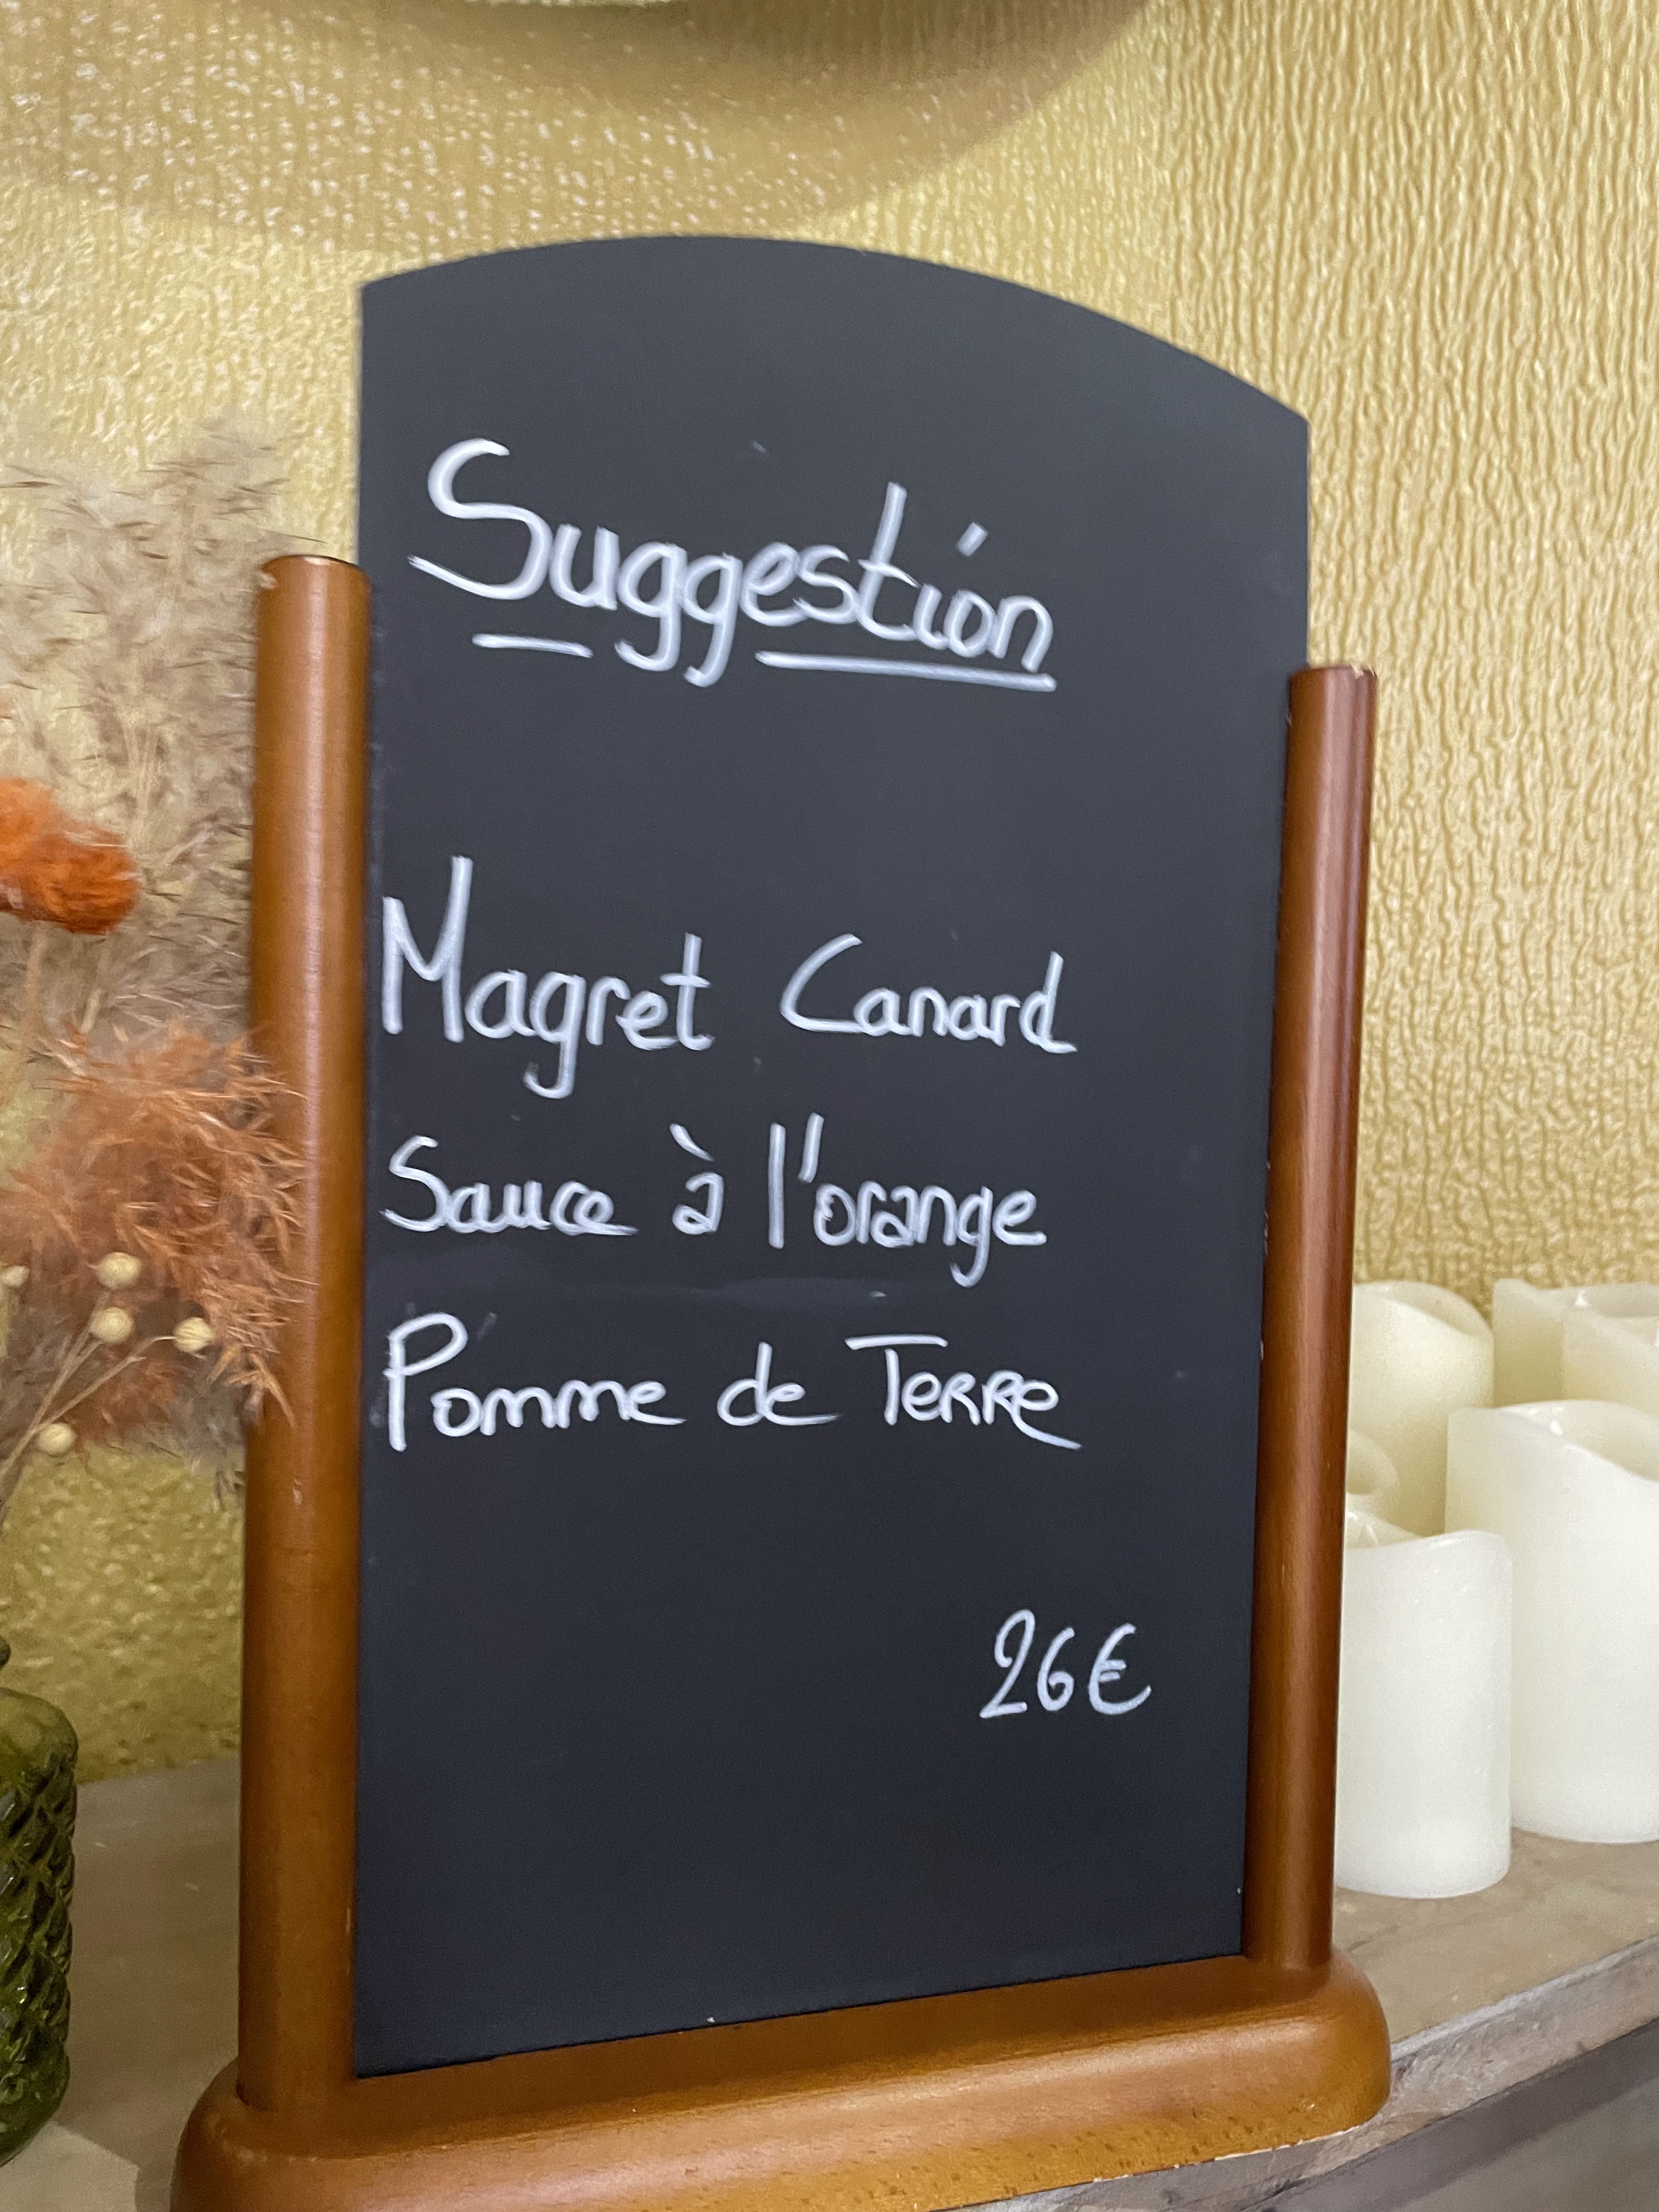 Suggestion
Magret Canard
Sauce à l'orange
Pomme de Terre
26€